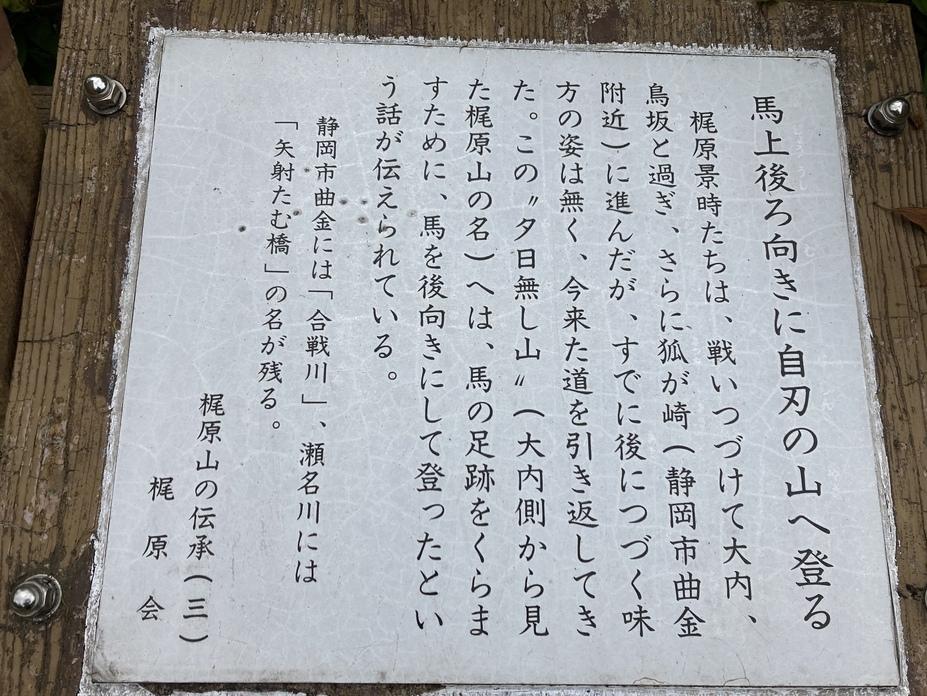 馬上後ろ向きに自刃の山へ登る
梶原景時たちは、戦いつづけて大内、
鳥坂と過ぎ、さらに狐が崎(静岡市曲金
附近)に進んだが、すでに後につづく味
方の姿は無く、今来た道を引き返してき
た。この〃夕日無し山〃(大内側から見
た梶原山の名)へは、馬の足跡をくらま
すために、馬を後向きにして登ったとい
う話が伝えられている。
静岡市曲金には「合戦川」、瀬名川には
「矢射たむ橋」の名が残る。
梶原山の伝承(三)
梶原会